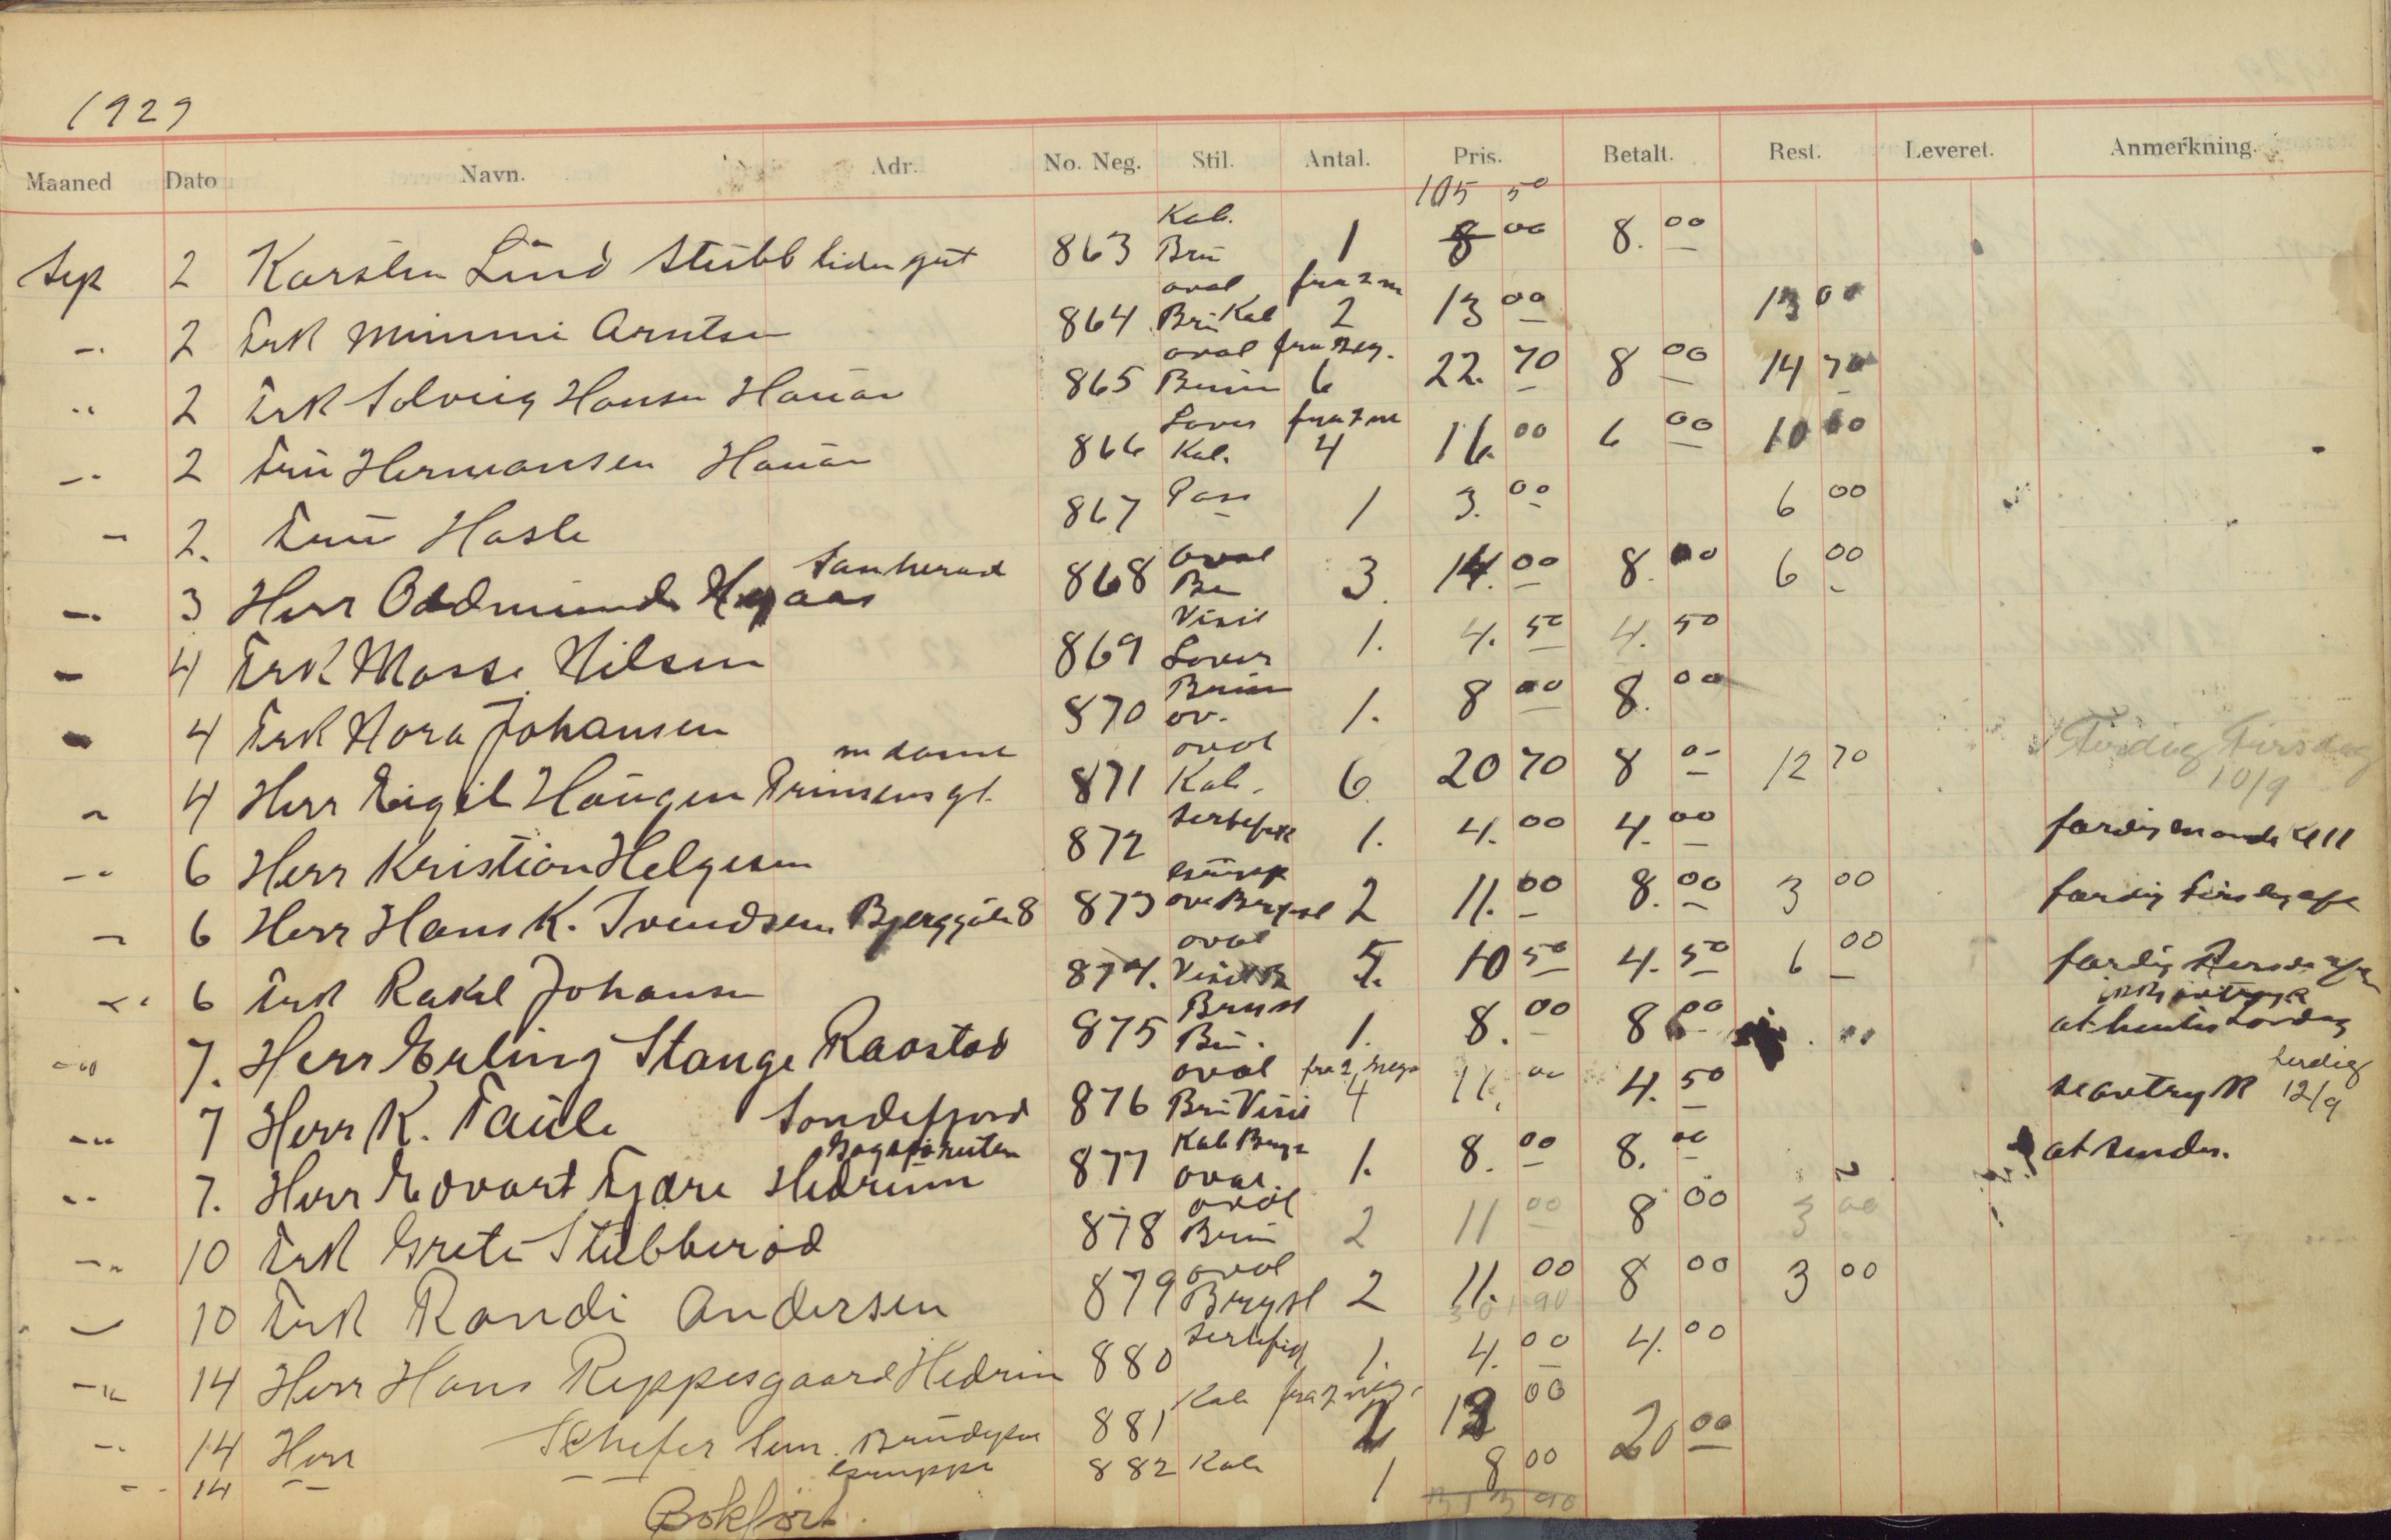 1929
Maaned Dato Navn. Adr. No. Neg. Stil. Antal. Pris. Betalt. Rest. Leveret. Anmerkning.
105 50
Sep 2 Karsten Lind Stubb liden gut 863 Kab. Brü 1 8 00 8.00
2 Frk Mimmi Arntsen 864 oval Brü Kab fra 2 ne 2 13 00 13 00
2 Frk Solveig Hansen Hauan 865 oval Brün fra neg. 6 22.70 8 00 14 70
2 Frü Hermansen Hauan 866 Kab. fra 2 ne 4 16.00 6 00 10 00
2. Frü Hasle 867 Pass 1 3.00 6 00
3 Herr Oddmund Sanherad 868 oval Br 3. 14.00 8.00 6 00
4 Frk Masse Nilsen 869 Visit 1. 4.50 4.50
4 Frk Nora Johansen 870 Brün ov. 1. 8 00 8.00
4 Herr Eigil Haugen Prinsens gt. m dame 871 oval Kab. 6 20 70 8 00 12 70 Færdig Tirsdag 10/9
6 Herr Kristian Helgesen 872 sertefik 1. 4.00 4.00 færdig
6 Herr Hans K. Svendsen Bjerggata 8 873 2 11.00 8.00 3 00 færdig
6 Frk Rakel Johansen 874. oval Visit 5. 10 50 4.50 6 00 færdig
7. Herr Erling Stange Raastad 875 Bryst Brü. 1. 8.00 8 00 at hentes Lørdag
7 Herr K. Faüle Sandefjord 876 oval Brü Visit fra 2 nega 4 11.00 4.50 se avtryk ferdig 12/9
7. Herr Edvart Fjære Hedrum 877 Kab Brys oval. 1. 8.00 8.00 at sendes.
10 Frk Grete Stubberød 878 oval Brün 2 11 00 8 00 3 00
10 Frk Randi Andersen 879 oval Bryst 2 11.00 8 00 3 00
301 90
14 Herr Hans Reppesgaard Hedrum 880 sertefik 1. 4.00 4.00
14 Herr Schefer Sen. Brüdepar 881 Kab fra 2 neg. 2 13 00 20 00
14 Gruppe 882 Kab 1 8 00
313 90
Bokført.